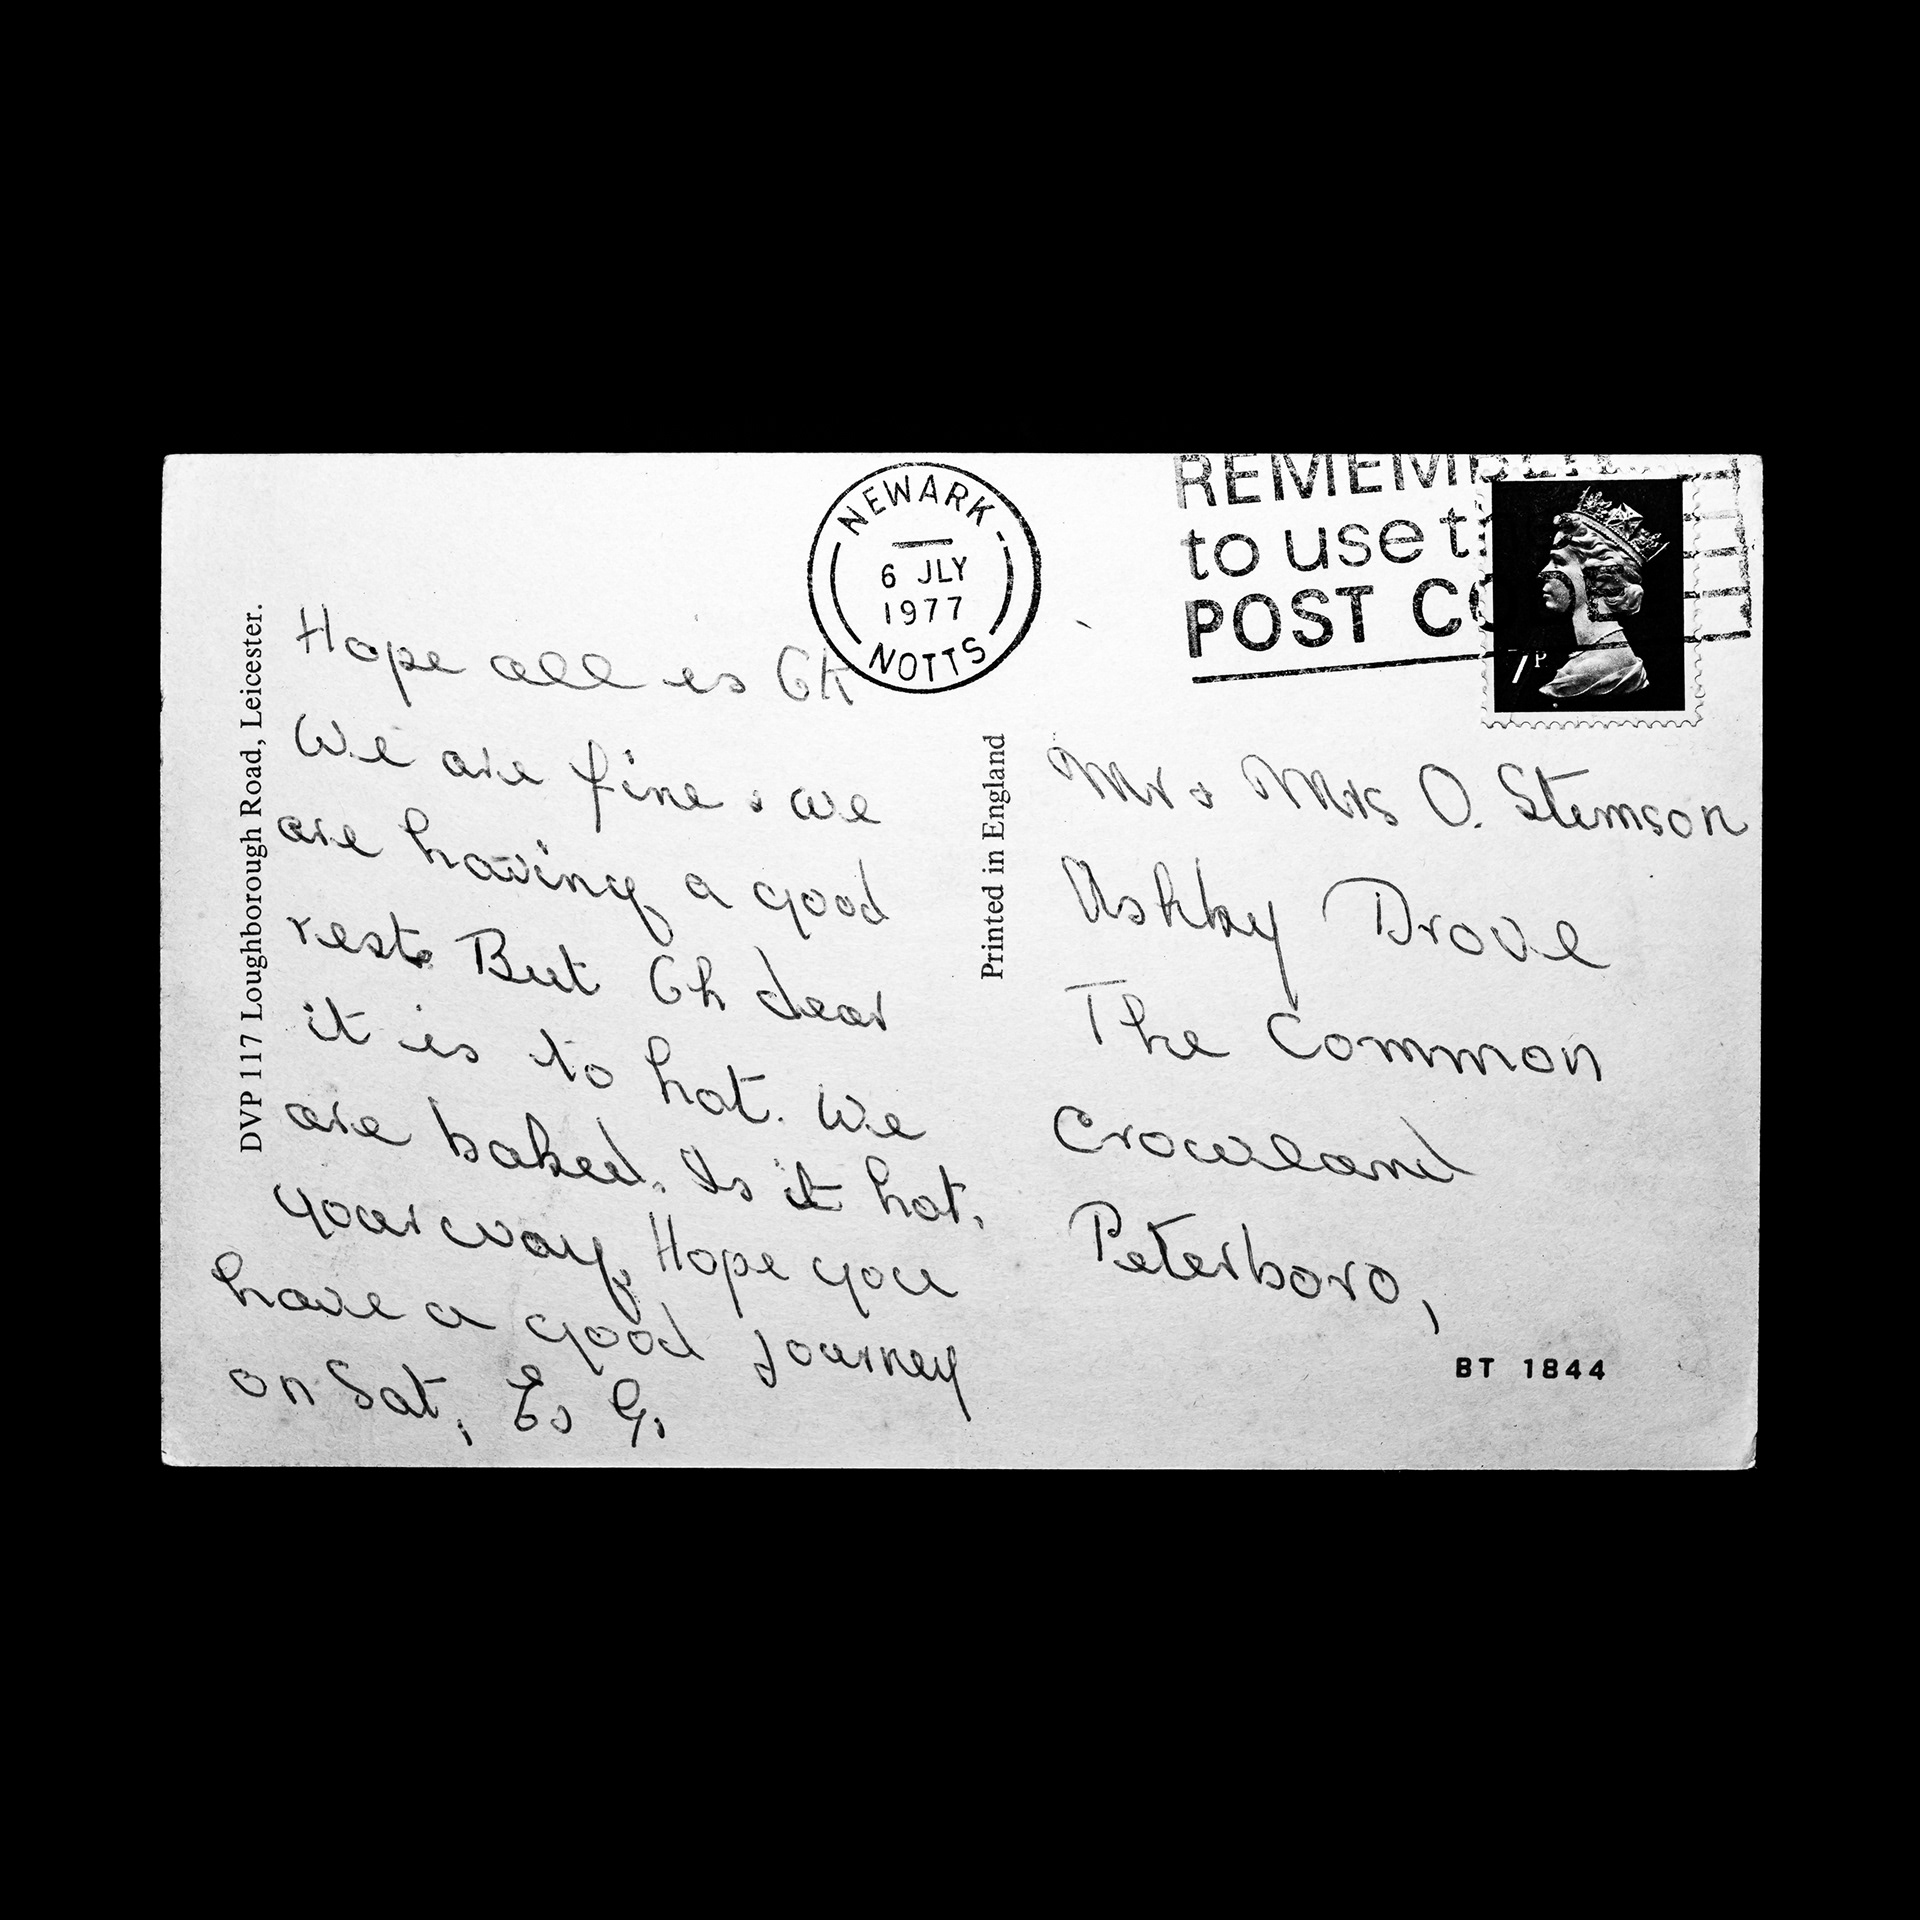 DVP 117 Loughborough Road, Leicester.
Hope all is Ok
We are fine & we
are having a good
rest. But Oh dear
it is to hot. We
are baked. Is it hot.
your way, Hope you
have a good journey
on Sat, Es G.
Printed in England
NEWARK
6 JLY
1977
NOTTS
REMEMBER
to use t
POST CODE
7P
Mr & Mrs O. Stimson
Ashby Drove
The Common
Crowland
Peterboro,
BT 1844